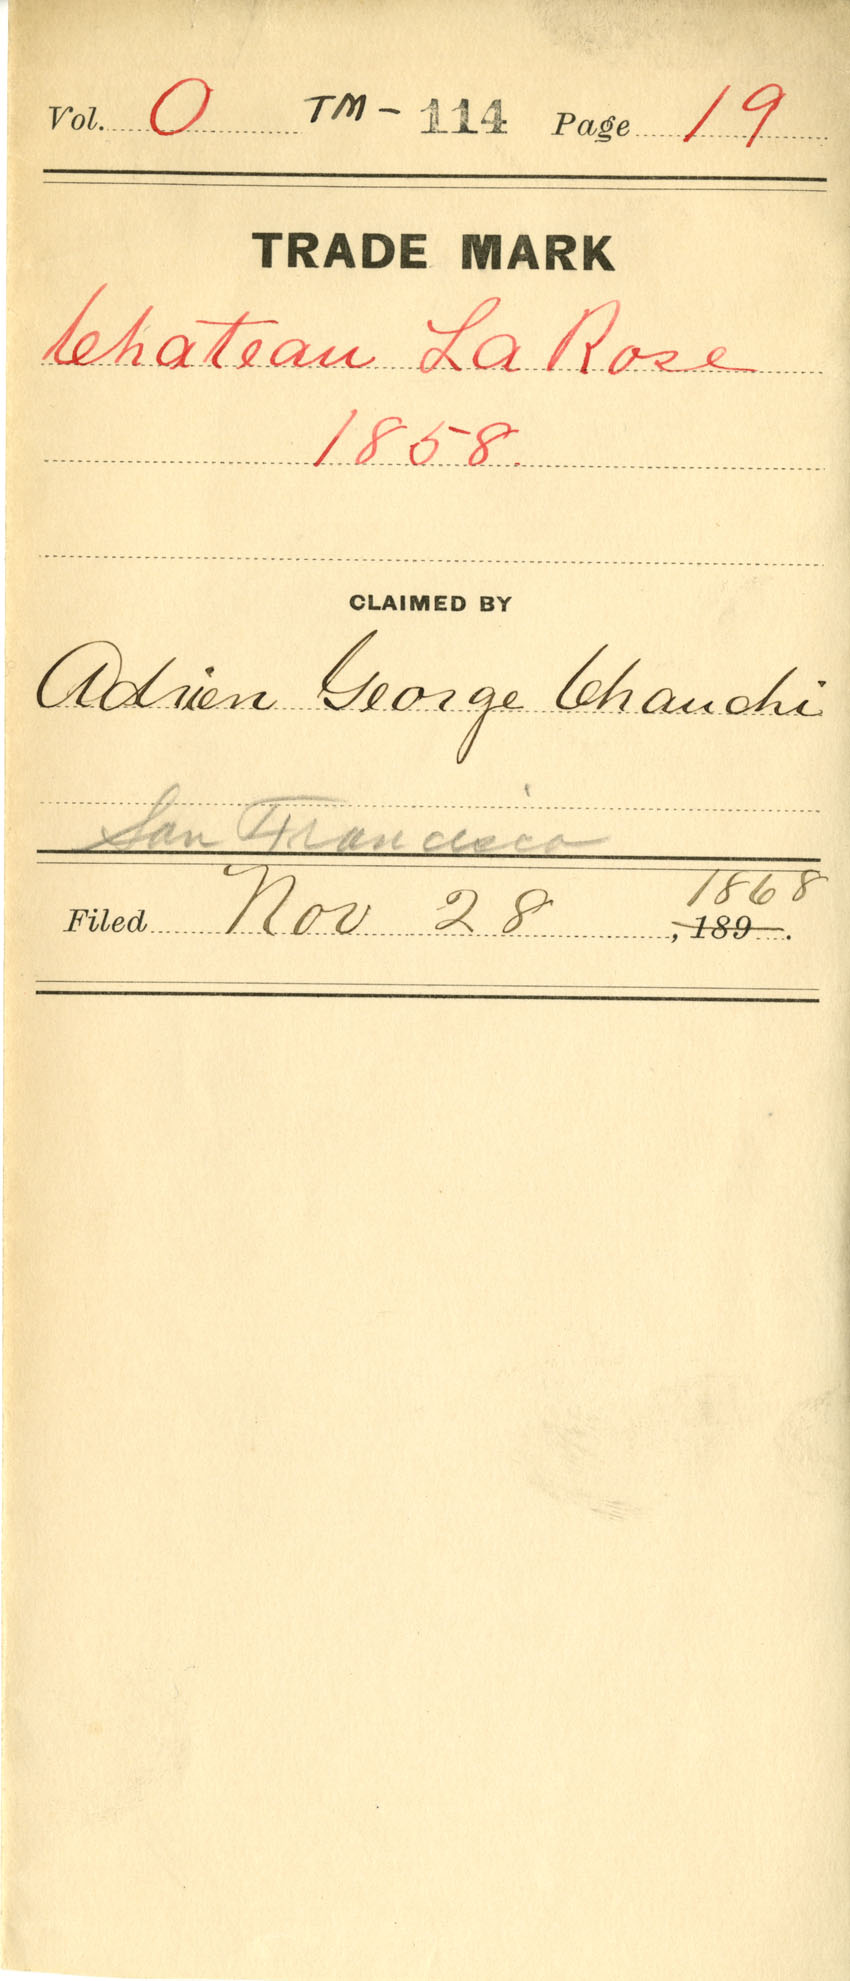 Vol. 0 TM - 114 Page 19
TRADE MARK
Chateau La Rose
1858.
CLAIMED BY
Adrien George Chauchi
San Francisco
1868
Filed Nov 28, 189 .